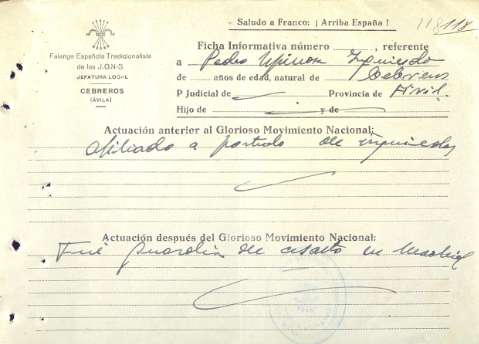 - Saludo a Franco: ¡ Arriba España !
118
Falange Española Tradicionalista
de las J.O.N-S
JEFATURA LOCAL
CEBREROS
(ÁVILA)
Ficha Informativa número , referente
a Pedro Izquierdo
de años de edad, natural de Cebreros
P Judicial de Provincia de Avila.
Hijo de y de
Actuación anterior al Glorioso Movimiento Nacional:
Afiliado a partido de izquierdas
Actuación después del Glorioso Movimiento Nacional:
Fué Guardia de asalto en Madrid